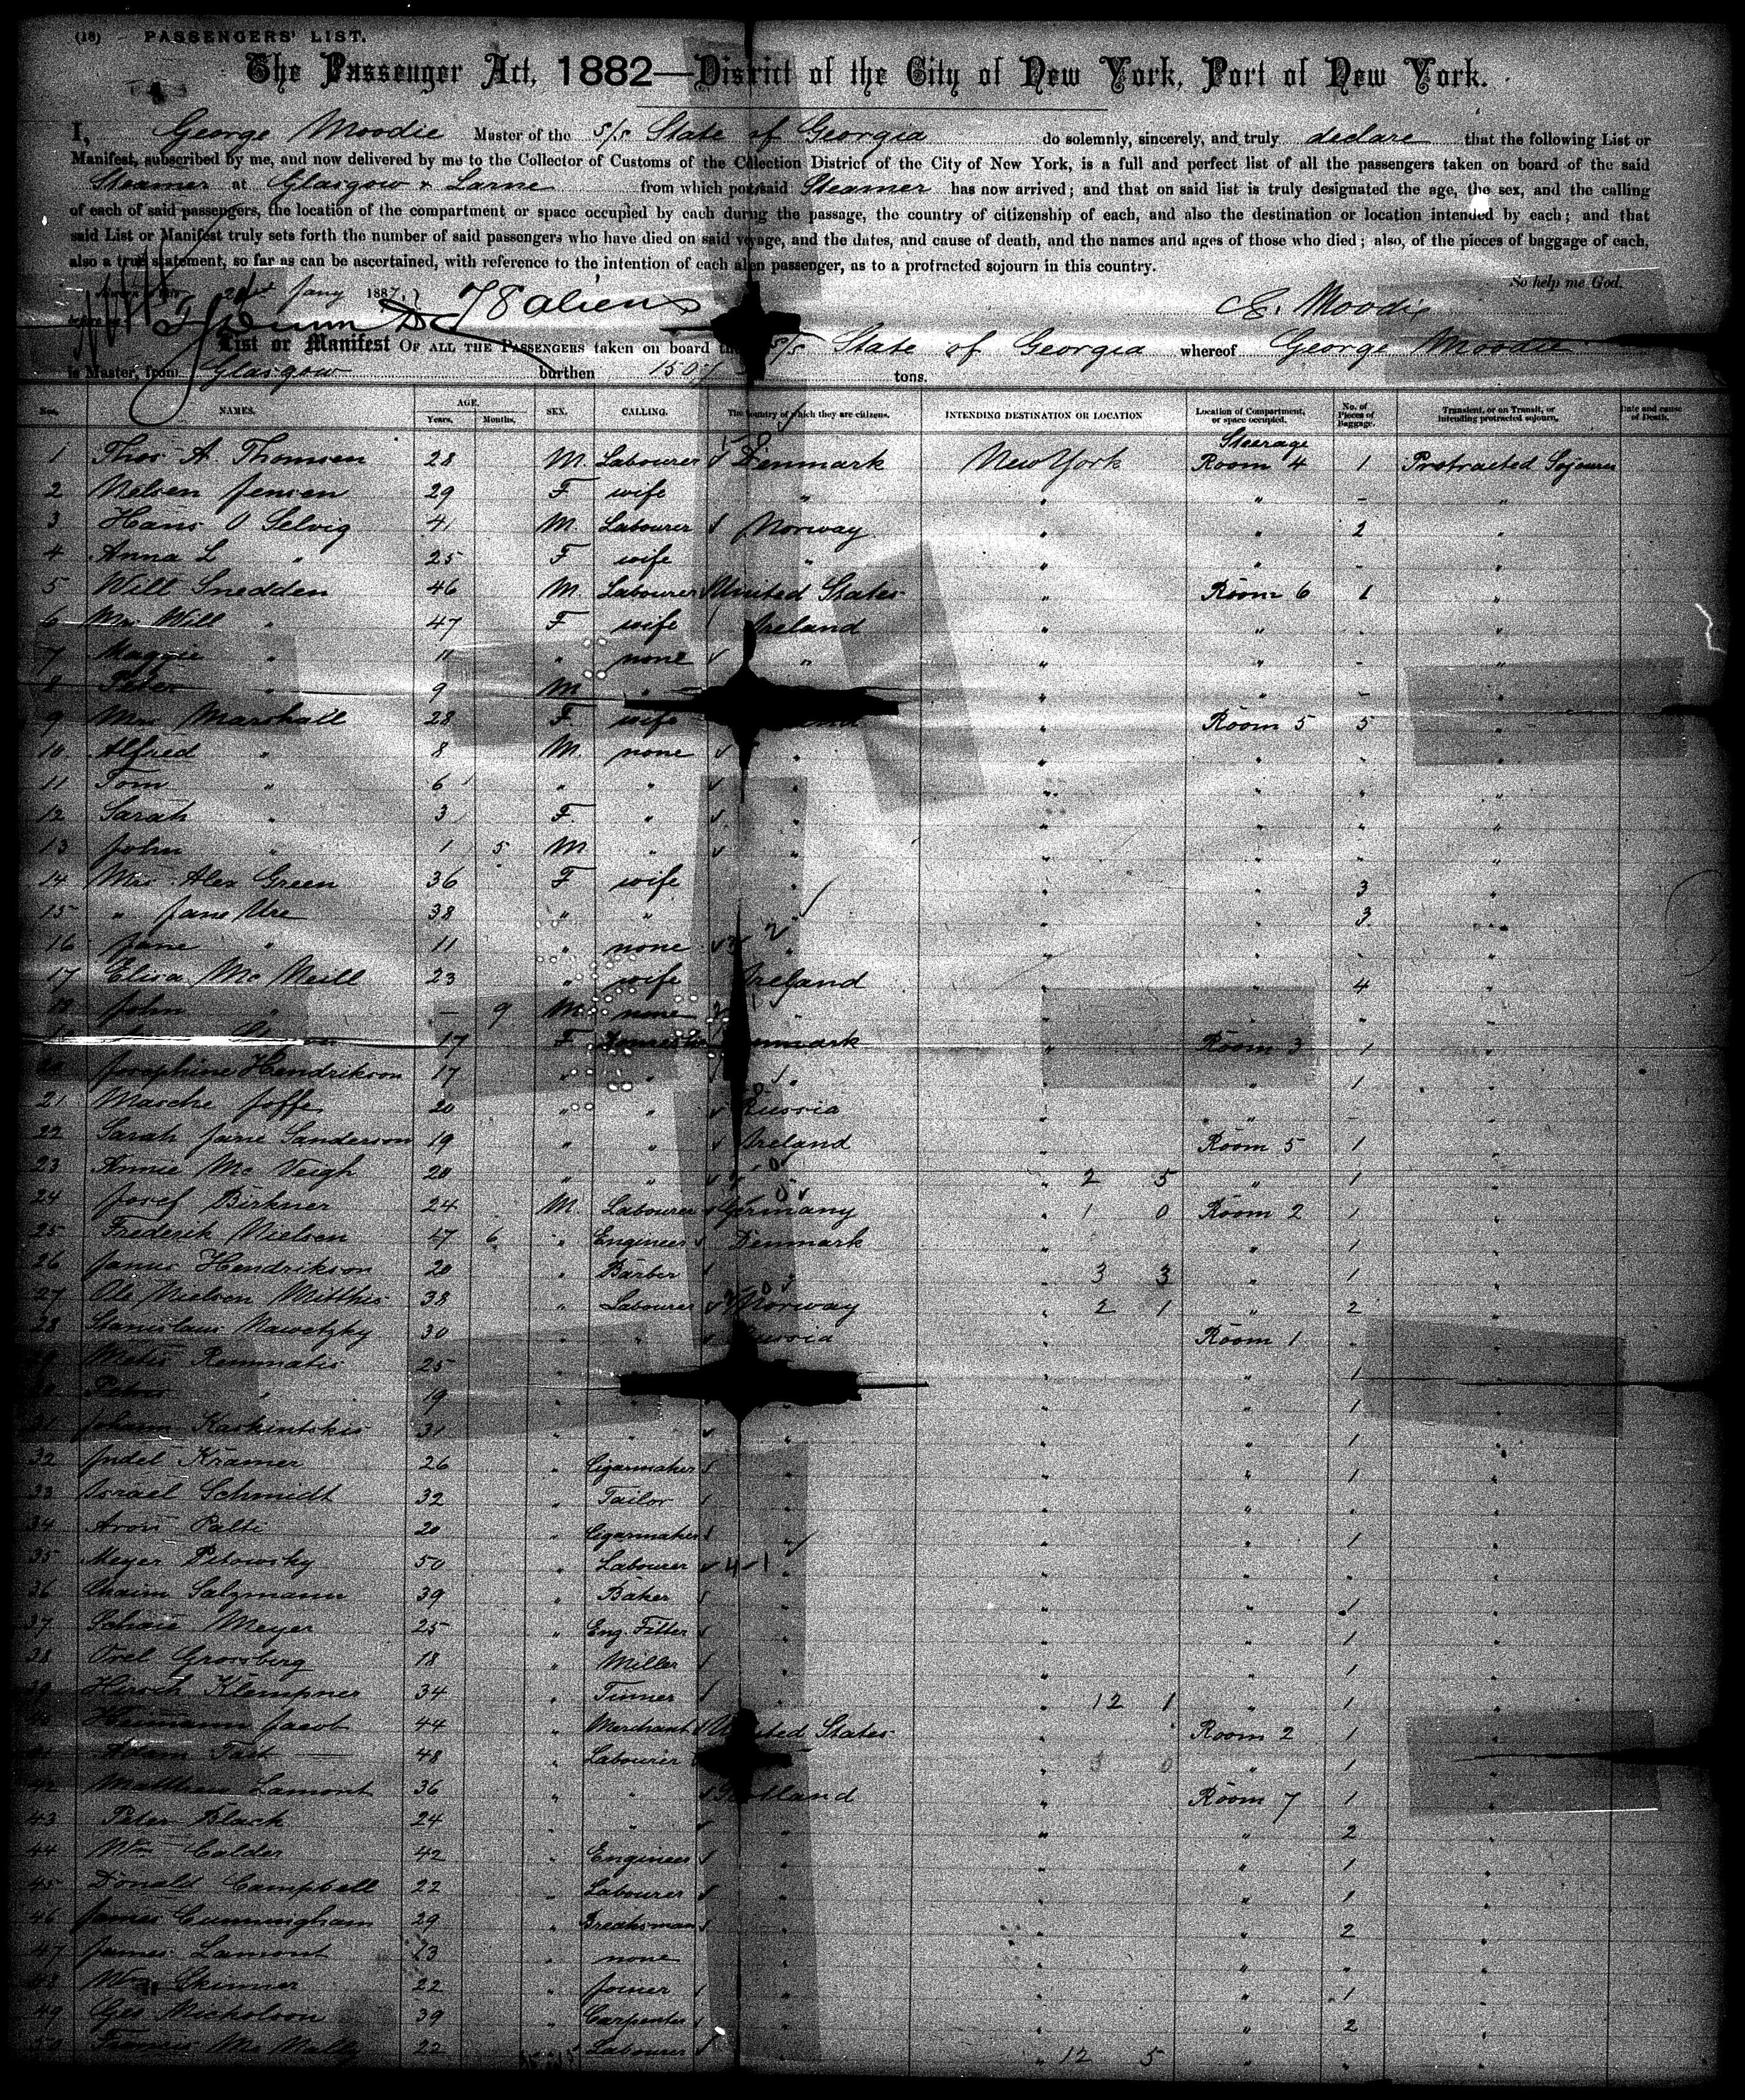 (18) PASSENGERS' LIST.
The Passenger Act, 1882—District of the City of New York, Port of New York.
I, George Moodie Master of the s/s State of Georgia do solemnly, sincerely, and truly declare that the following List or
Manifest, subscribed by me, and now delivered by me to the Collector of Customs of the Collection District of the City of New York, is a full and perfect list of all the passengers taken on board of the said
Steamer at Glasgow & Larne from which port said Steamer has now arrived; and that on said list is truly designated the age, the sex, and the calling
of each of said passengers, the location of the compartment or space occupied by each during the passage, the country of citizenship of each, and also the destination or location intended by each; and that
said List or Manifest truly sets forth the number of said passengers who have died on said voyage, and the dates, and cause of death, and the names and ages of those who died; also, of the pieces of baggage of each,
also a true statement, so far as can be ascertained, with reference to the intention of each alien passenger, as to a protracted sojourn in this country.
So help me God.
21st Jany 1887 78 aliens G. Moodie
List or Manifest OF ALL THE PASSENGERS taken on board the s/s State of Georgia whereof George Moodie
is Master, from Glasgow burthen tons.
Nos. NAMES. AGE. Years. Months. SEX. CALLING. The country of which they are citizens. INTENDING DESTINATION OR LOCATION Location of Compartment, or space occupied. No. of Pieces of Baggage. Transient, or on Transit, or intending protracted sojourn. Date and cause of Death.
1 Thos A. Thomsen 28 M. Labourer Denmark New York Steerage Room 4 1 Protracted Sojourn
2 Nelsen Jensen 29 F wife " " " - "
3 Hans O Selvig 41 M. Labourer Norway " " 2 "
4 Anna L " 25 F wife " " " - "
5 Will Snedden 46 M. Labourer United States " Room 6 1 "
6 Mrs Will " 47 F wife Ireland " " - "
7 Maggie " 11 " none " " " - "
8 Peter " 9 M " " " - "
9 Mrs Marshall 28 F wife " Room 5 5 "
10 Alfred " 8 M. none " " " " "
11 Tom " 6 " " " " " " "
12 Sarah " 3 F " " " " " "
13 John " 1 5 M " " " " " "
14 Mrs Alex Green 36 F wife " " " 3 "
15 " Jane Ure 38 " " " " " 3 "
16 Jane " 11 " none " " " " "
17 Elisa Mc Neill 23 " wife Ireland " " 4 "
18 John " - 9 M none " " " " "
17 F Domestic Denmark " Room 3 1 "
20 Josephine Hendrikson 17 " " " " " 1 "
21 Masche Joffe 20 " " Russia " " - "
22 Sarah Jane Sanderson 19 " " Ireland " Room 5 1 "
23 Annie Mc Veigh 20 " " " " 2 5 " 1 "
24 Josef Birkner 24 M. Labourer Germany " 1 0 Room 2 1 "
25 Frederik Nielsen 47 6 " Engineer Denmark " " 1 "
26 Janus Hendrikson 20 " Barber " 3 3 " 1 "
27 Ole Nielsen Mitthis 38 " Labourer Norway " 2 1 " 2 "
28 Stanislaus Nawetzky 30 " " Russia " Room 1 " "
29 Metis Remmatis 25 " " " 1 "
30 Petrus " 19 " " " " 1 "
31 Johann Kaskintskis 31 " " " " " 1 "
32 Judel Kramer 26 " Cigarmaker " " " 1 "
33 Israel Schmidt 32 " Tailor " " " " "
34 Aron Palti 20 " Cigarmaker " " " 1 "
35 Meyer Pitowsky 50 " Labourer 4-1 " " " " "
36 Chaim Salzmann 39 " Baker " " " 1 "
37 Schaie Meyer 25 " Eng. Fitter " " " 1 "
38 Orel Grossberg 18 " Miller " " " 1 "
39 Hirsch Klempner 34 " Tinner " " 12 1 " 1 "
40 Heimann Jacob 44 " Merchant United States " Room 2 1 "
41 Adam Tait 48 " Labourer " 3 0 " 1 "
42 Matthew Lamont 36 " " Scotland " Room 7 1 "
43 Peter Black 24 " " " " " 2 "
44 Wm Calder 42 " Engineer " " " 1 "
45 Donald Campbell 22 " Labourer " " " 1 "
46 James Cunningham 29 " Breaksman " " " 2 "
47 James Lamont 13 " none " " " " "
48 Wm Skinner 22 " Joiner " " " 1 "
49 Geo Nicholson 39 " Carpenter " " " 2 "
50 Francis Mc Nally 22 " Labourer " " 12 5 " " "